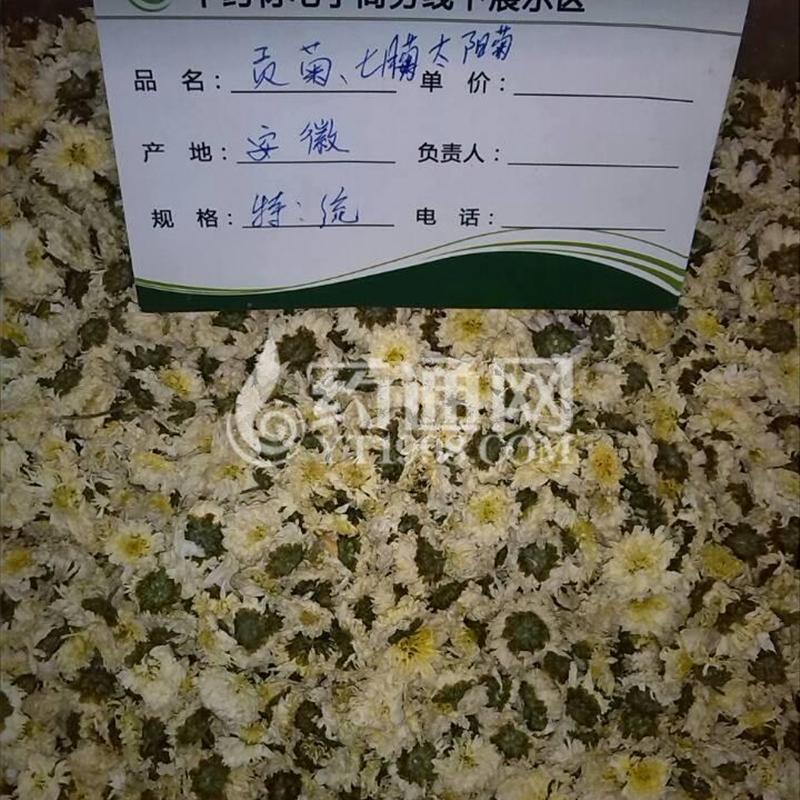 中药材电子商务线下展示区
品 名： 贡菊、七月菊太阳菊 单 价：
产 地： 安徽 负责人：
规 格： 特：统 电 话：
药通网
YT1998.COM